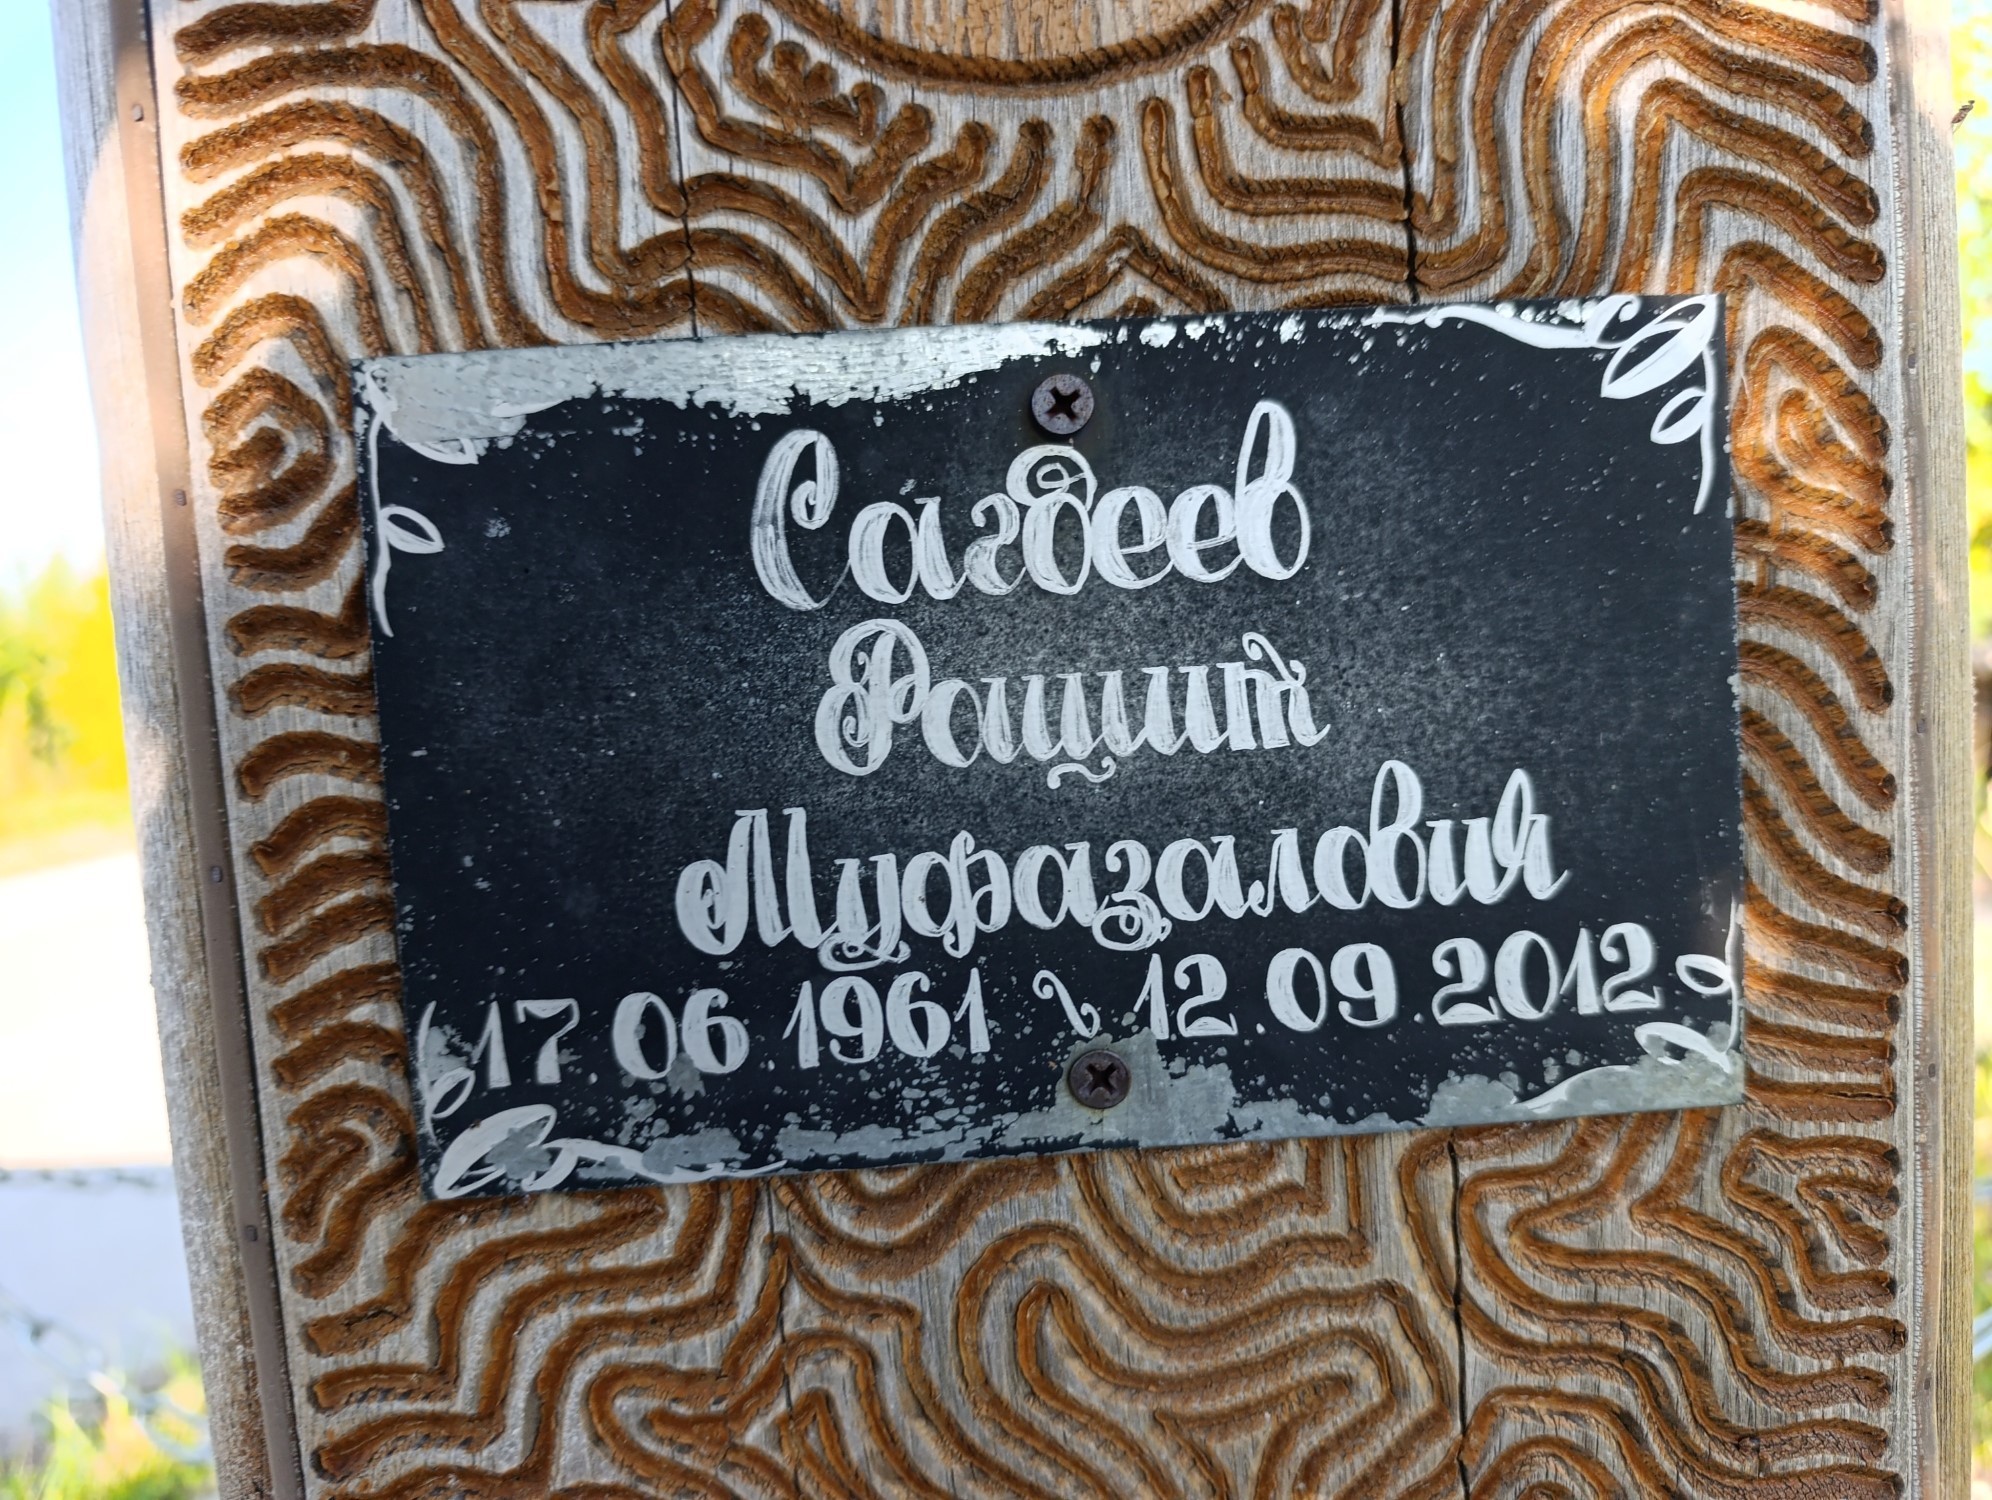 Сагдеев
Рашит
Муфазалович
17 06 1961 ~ 12.09.2012